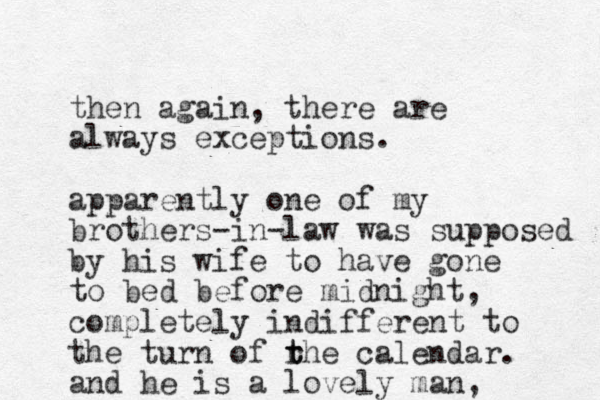 then again, there are
always exceptions.
apparently one of my
brothers-in-law was supposed
by his wife to have gone
to bed before midnight,
completely indifferent to
the turn of the calendar.
and he is a lovely man,